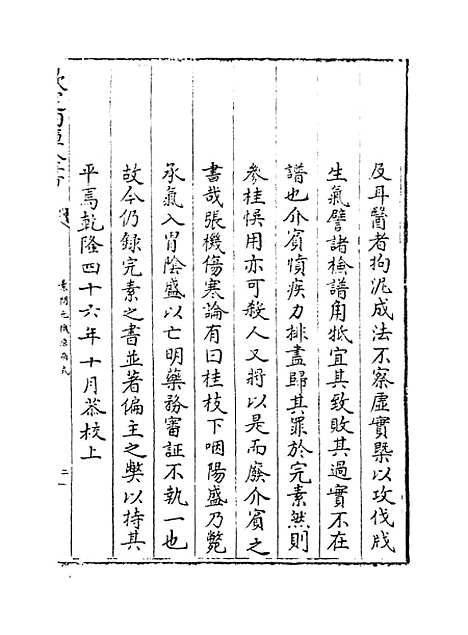 及耳醫者拘泥成法不察虛實槩以攻伐戕
生氣譬諸檢譜角觝宜其致敗其過實不在
譜也介賓憤疾力排盡歸其罪於完素然則
參桂悞用亦可殺人又將以是而廢介賓之
書哉張機傷寒論有曰桂枝下咽陽盛乃斃
承氣入胃陰盛以亡明藥務審証不執一也
故今仍録完素之書並著偏主之獘以持其
平焉乾隆四十六年十月恭校上
欽定四庫全書
素問元機原病式
二